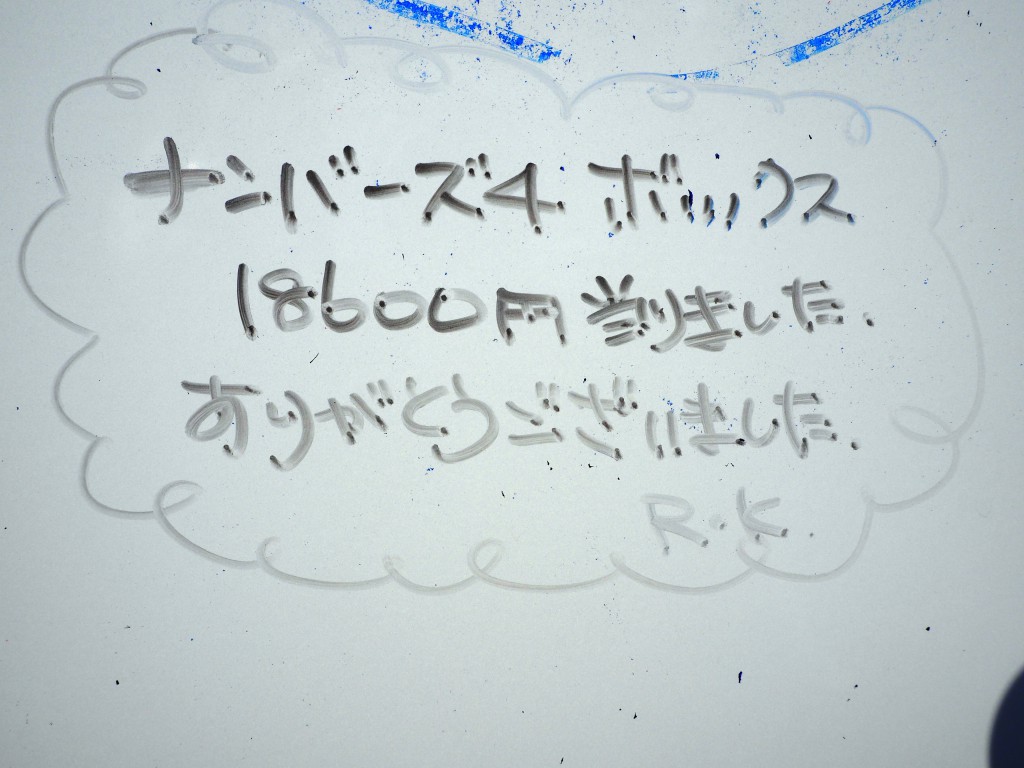 ナンバーズ4 ボックス
18600円 当りました.
ありがとうございました.
R.K.